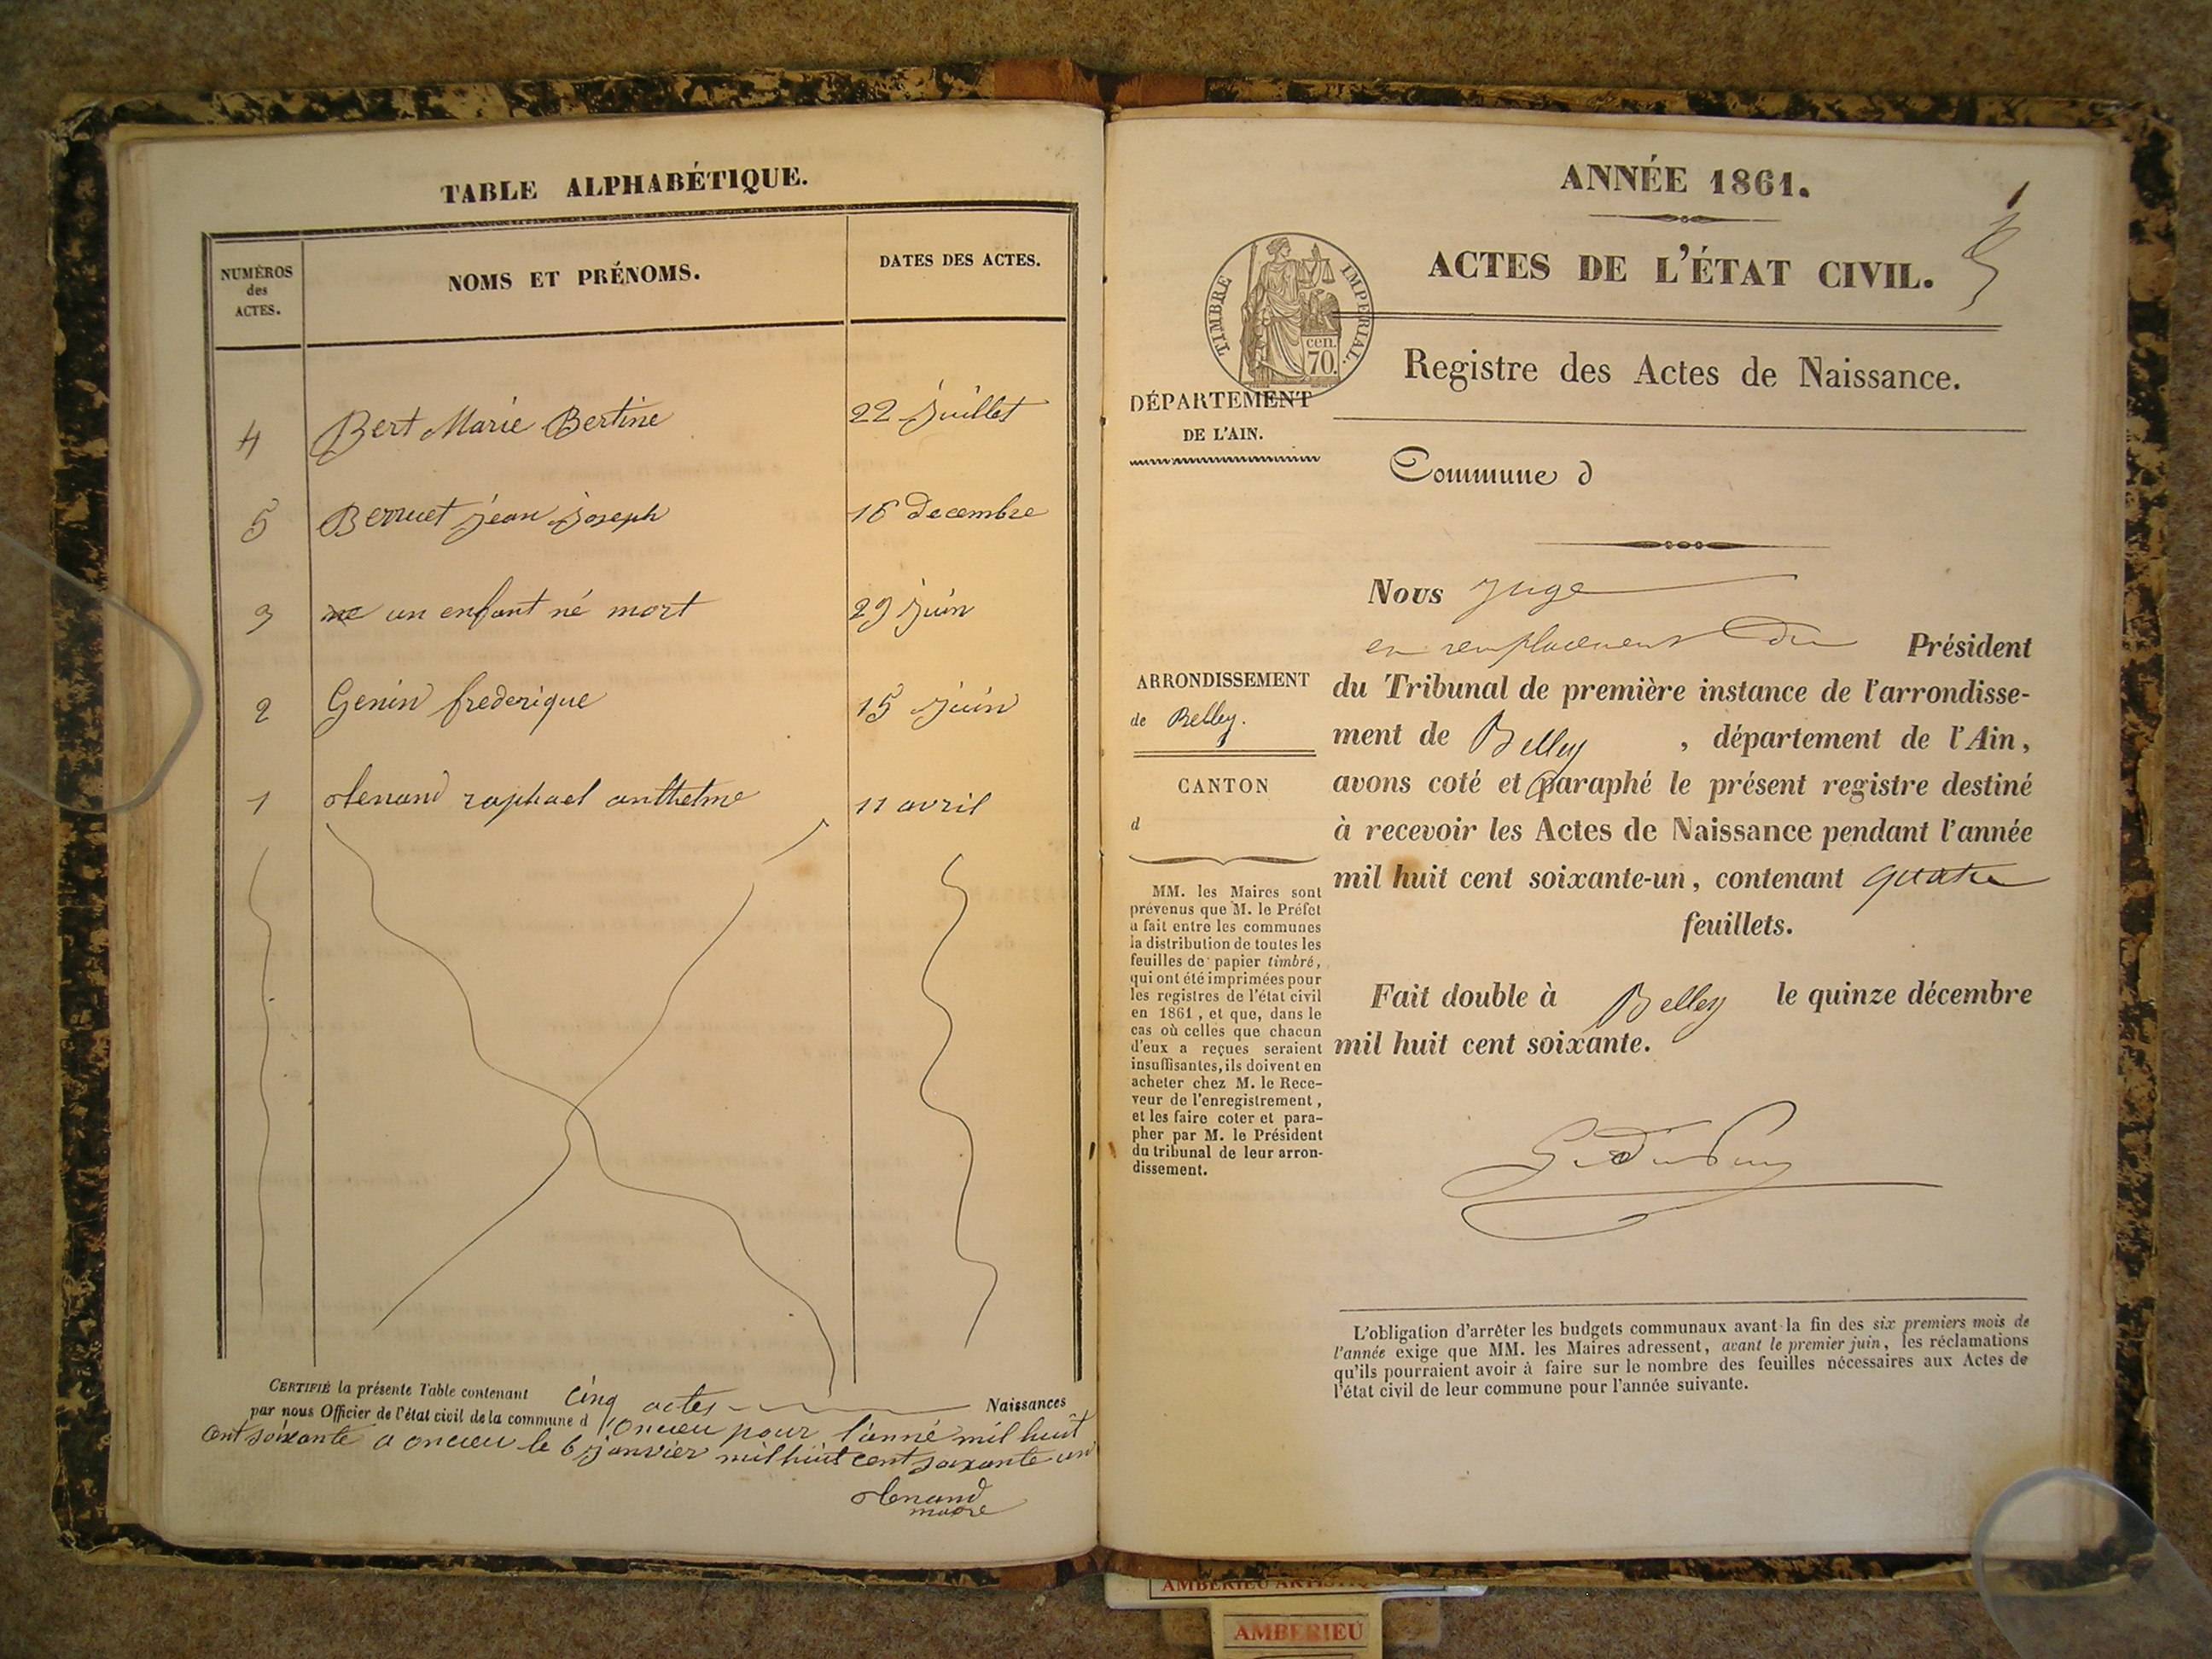 TABLE ALPHABÉTIQUE.
NUMÉROS
des
ACTES.
NOMS ET PRÉNOMS.
DATES DES ACTES.
4 Bert Marie Bertine 22 juillet
5 Berruet jean joseph 16 decembre
3 un enfant né mort 29 juin
2 Genin frederique 15 juin
1 raphael anthelme 11 avril
CERTIFIÉ la présente Table contenant cinq actes Naissances
par nous Officier de l'état civil de la commune d'Oncieu pour l'anné mil huit
cent soixante a oncieu le 6 janvier mil huit cent soixante un
maire
ANNÉE 1861.
1
ACTES DE L'ÉTAT CIVIL.
TIMBRE IMPERIAL.
cen.
70.
Registre des Actes de Naissance.
DÉPARTEMENT
DE L'AIN.
Commune d
Nous juge
en remplacement du Président
du Tribunal de première instance de l'arrondisse-
ment de Belley, département de l'Ain,
avons coté et paraphé le présent registre destiné
à recevoir les Actes de Naissance pendant l'année
mil huit cent soixante-un, contenant quatre
feuillets.
Fait double à Belley le quinze décembre
mil huit cent soixante.
ARRONDISSEMENT
de Belley.
CANTON
d
MM. les Maires sont
prévenus que M. le Préfet
a fait entre les communes
la distribution de toutes les
feuilles de papier timbré,
qui ont été imprimées pour
les registres de l'état civil
en 1861, et que, dans le
cas où celles que chacun
d'eux a reçues seraient
insuffisantes, ils doivent en
acheter chez M. le Rece-
veur de l'enregistrement,
et les faire coter et para-
pher par M. le Président
du tribunal de leur arron-
dissement.
L'obligation d'arrêter les budgets communaux avant la fin des six premiers mois de
l'année exige que MM. les Maires adressent, avant le premier juin, les réclamations
qu'ils pourraient avoir à faire sur le nombre des feuilles nécessaires aux Actes de
l'état civil de leur commune pour l'année suivante.
AMBERIEU